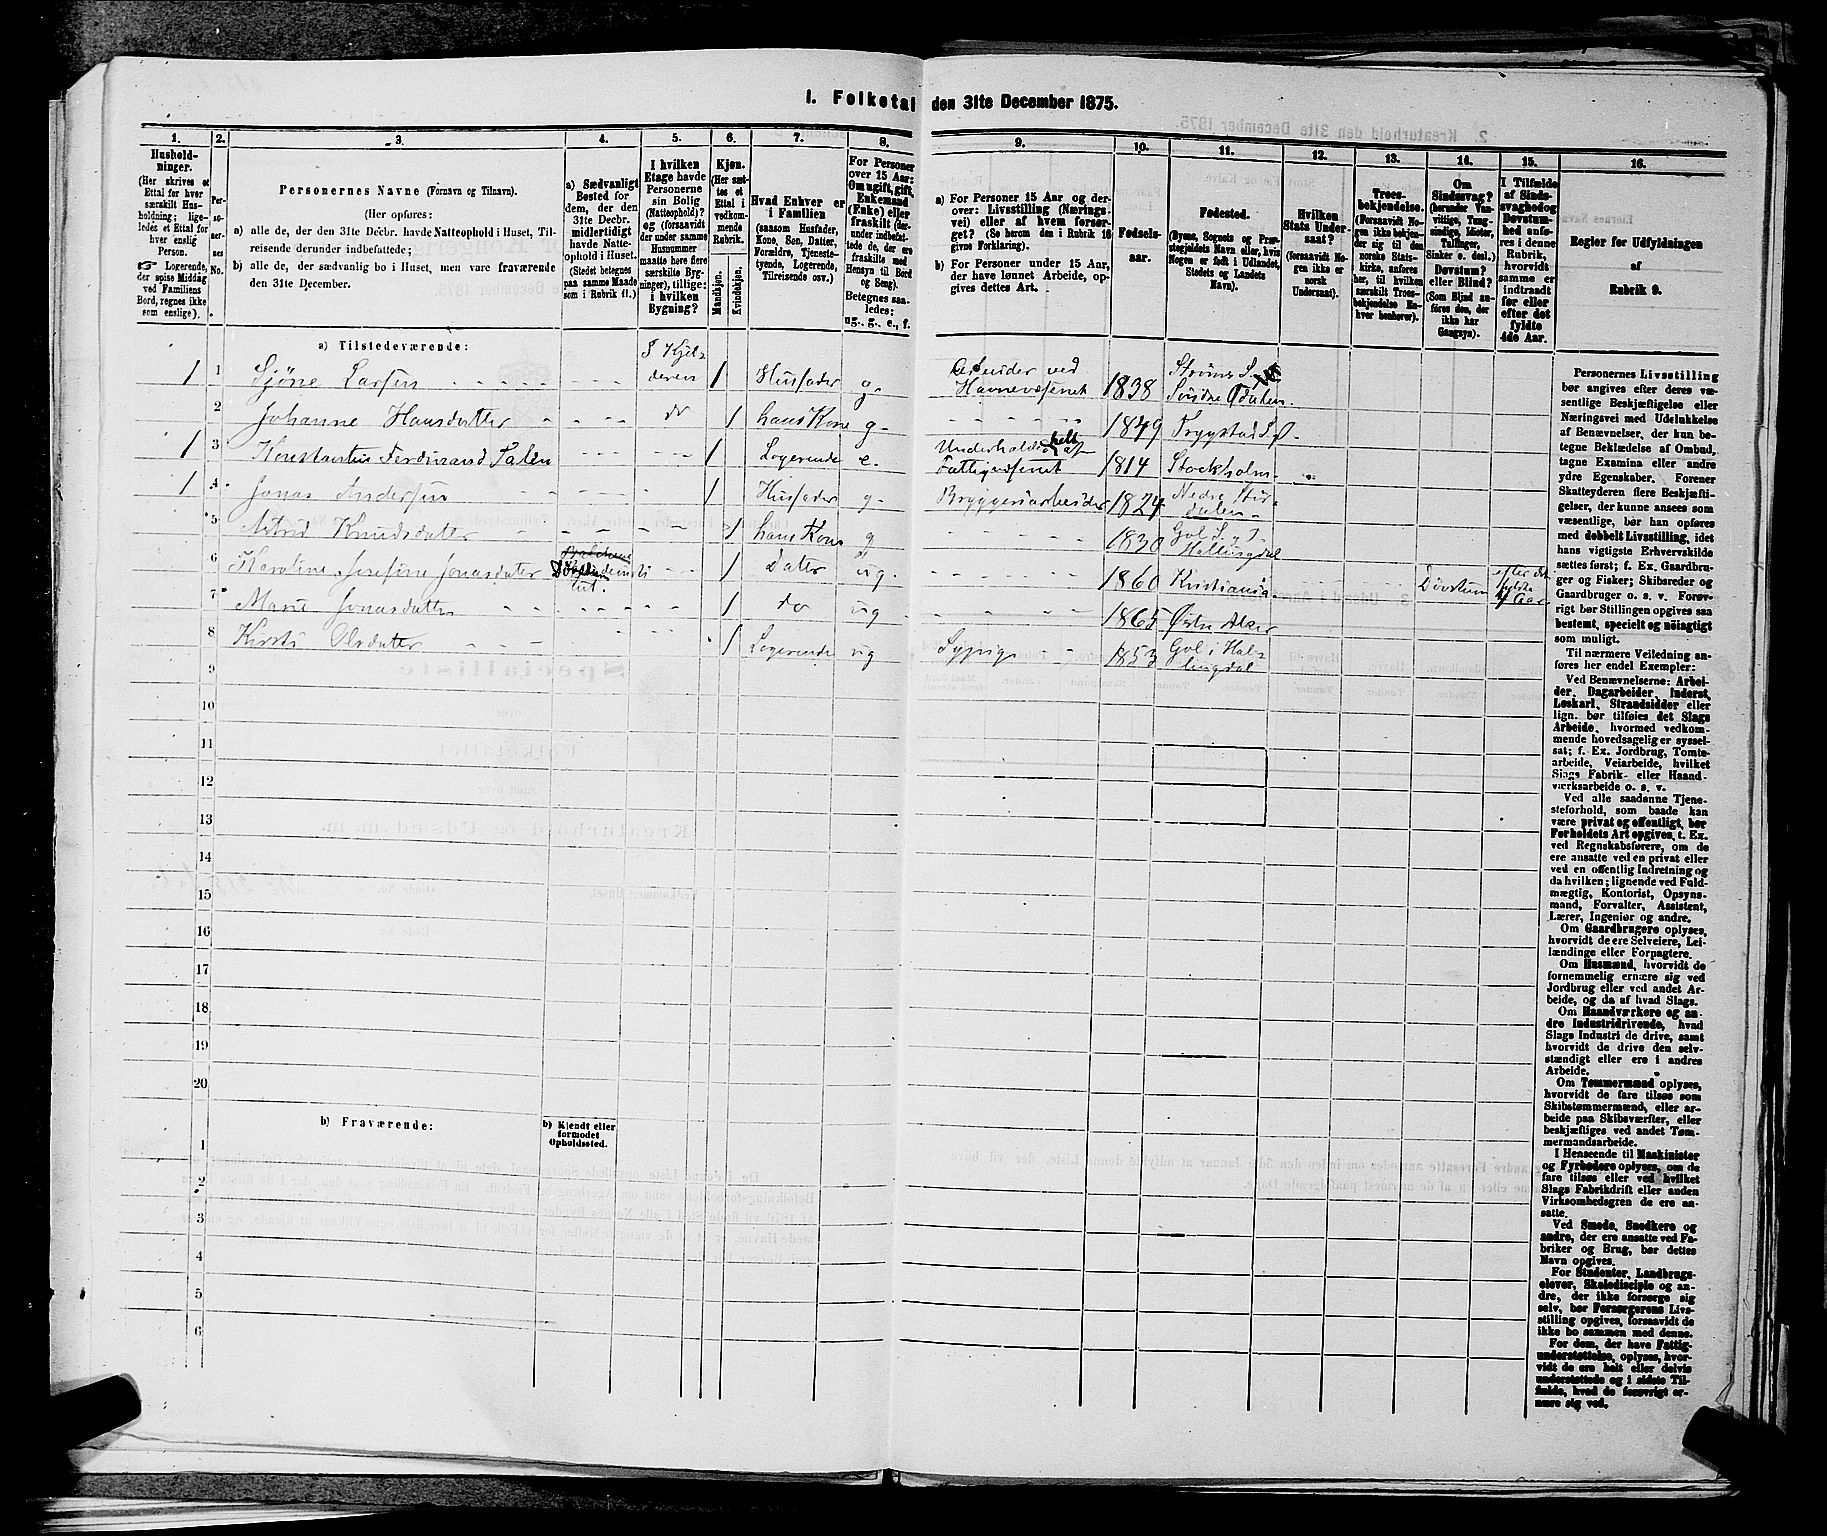 I. Folketal den 31te December 1875.
1. 2. 3. 4. 5. 6. 7. 8. 9. 10. 11. 12. 13. 14. 15. 16.
Hushold-
ninger.
(Her skrives et
Ettal for hver
særskilt Hus-
holdning; lige-
ledes et Ettal for
hver enslig
Person.
Logerende,
der spise Middag
ved Familiens
Bord, regnes ikke
som enslige).
Per-
so-
ner-
nes
No.
Personernes Navne (Fornavn og Tilnavn).
(Her opføres:
a) alle de, der den 31te Decbr. havde Natteophold i Huset, Til-
reisende derunder indbefattede;
b) alle de, der sædvanlig bo i Huset, men vare fraværende
den 31te December.
a) Sædvanligt
Bosted for
dem, der den
31te Decbr.
midlertidigt
havde Natte-
ophold i Huset.
(Stedet betegnes
paa samme Maade
som i Rubrik 11.)
I hvilken
Etage havde
Personerne
sin Bolig
(Natteophold)?
og (forsaavidt
der under samme
Husnummer
maatte høre flere
særskilte Byg-
ninger), tillige:
i hvilken
Bygning?
Kjøn.
(Her sæt-
tes et
Ettal i
vedkom-
mende
Rubrik.
Mandkjøn.
Kvindekjøn.
Hvad Enhver er
i Familien
(saasom Husfader,
Kone, Søn, Datter,
Forældre, Tjeneste-
tyende, Logerende,
Tilreisende osv.)
For Personer
over 15 Aar:
Om ugift, gift,
Enkemand
(Enke) eller
fraskilt (her-
under indbefat-
tede de, der ere
fraskilte med
Hensyn til Bord
og Seng).
Betegnes saa-
ledes:
ug., g., e., f.
a) For Personer 15 Aar og der-
over: Livsstilling (Nærings-
vei) eller af hvem forsør-
get? (Se herom den i Rubrik 16
givne Forklaring).
b) For Personer under 15 Aar,
der have lønnet Arbeide, op-
gives dettes Art.
Fødsels-
aar.
Fødested.
(Byens, Sognets og Præ-
stegjeldets Navn eller, hvis
Nogen er født i Udlandet,
Stedets og Landets
Navn).
Hvilken
Stats Under-
saat?
(forsaavidt No-
gen ikke er
norsk
Undersaat).
Troes-
bekjendelse.
(Forsaavidt No-
gen ikke bekjen-
der sig til den
norske Stats-
kirke, anføres
her, til hvilken
særskilt Troes-
bekjendelse En-
hver henhører).
Om
Sindssvag?
(herunder Van-
vittige, Tung-
sindige, Idioter,
Tullinger,
Sinker o. desl.)
Døvstum?
eller Blind?
(Som Blind an-
føres den, der
ikke har
Gangsyn).
I Tilfælde
af Sinds-
svaghed og
Døvstum-
hed anfø-
res i denne
Rubrik,
hvorvidt
samme er
indtraadt
før eller
efter det
fyldte
4de Aar.
Regler for Udfyldningen
af
Rubrik 9.
a) Tilstedeværende:
1 1 Larsen I Kjel-
deren 1 Husfader g. Arbeider ved
Havnevæsenet 1838 Strøms S.
2 Johanne Hansdatter do 1 hans Kone g. 1849 Trygstad
1 3 Ferdinand 1 Logerende e. helt af
Fattigvæsenet 1814 Stockholm
1 4 Jonas Andersen 1 Husfader g. Bryggeriarbeider 1824 Nedre
dalen
5 Astrid Knudsdatter 1 hans Kone g 1830 Gol
Hallingdal
6 Karoline Josefine Jonasdatter tut. 1 Datter ug. 1860 Kristiania Døvstum efter det
fyldte
4 Aar
7 Marie Jonasdatter 1 do ug 1865 Østre Aker
8 Kirsti Olsdatter 1 Logerende ug Sypige 1853 Gol i Hal-
lingdal
9
10
11
12
13
14
15
16
17
18
19
20
b) Fraværende:
b) Kjendt eller
formodet
Opholdssted.
1
2
3
4
5
6
Personernes Livsstilling
bør angives efter deres væ-
sentlige Beskjæftigelse eller
Næringsvei med Udelukkelse
af Benævnelser, der kun be-
tegne Bekladelse af Ombud,
tagne Examina eller andre
ydre Egenskaber. Forener
Skatteyderen flere Beskjæfti-
gelser, der kunne ansees som
væsentlige, bør han opføres
med dobbelt Livsstilling, idet
hans vigtigste Erhvervskilde
sættes først; f. Ex. Gaardbru-
ger og Fisker; Skibsreder og
Gaardbruger o. s. v. Forøv-
rigt bør Stillingen opgives saa
bestemt, specielt og nöiagtigt
som muligt.
Til nærmere Veiledning an-
føres her endel Exempler:
Ved Benævnelserne: Arbei-
der, Dagarbeider, Inderst,
Løskarl, Strandsidder eller
lign. bør tilføies det Slags
Arbeide, hvormed vedkom-
mende hovedsagelig er syssel-
sat; f. Ex. Jordbrug, Tomte-
arbeide, Veiarbeide, hvilket
Slags Fabrik- eller Haand-
værksarbeide o. s. v.
Ved alle saadanne Tjene-
steforhold, som baade kan
være privat og offentligt, bør
Forholdets Art opgives, t. Ex.
ved Regnskabsførere, om de
ere ansatte ved en privat eller
ved en offentlig Indretning og
da hvilken; lignende ved Fuld-
mægtig, Kontorist, Opsyns-
mand, Forvalter, Assistent,
Lærer, Ingeniør og andre.
Om Gaardbrugere oplyses,
hvorvidt de ere Selveiere, Lei-
lændinge eller Forpagtere.
Om Husmænd, hvorvidt de
fornemmelig ernære sig ved
Jordbrug eller ved andet Ar-
beide, og da af hvad Slags.
Om Haandværkere og an-
dre Industridrivende, hvad
Slags Industri de drive, samt
hvorvidt de drive den selv-
stændigt eller ere i andres
Arbeide.
Om Tømmermænd oplyses,
hvorvidt de fare tilsøs som
Skibstømmermænd, eller ar-
beide paa Skibsværfter, eller
beskjæftiges ved andet Tøm-
mermandsarbeide.
I Henseende til Maskinister
og Fyrbødere oplyses, om de
fare tilsøs eller ved hvilket
Slags Fabrikdrift eller anden
Virksomhedsgren de ere an-
satte.
Ved Smede, Snedkere og
andre, der ere ansatte ved Fa-
briker og Brug, bør dettes
Navn opgives.
For Studenter, Landbrugs-
elever, Skoledisciple og an-
dre, der ikke forsørge sig
selv, bør Forsørgerens Livs-
stilling opgives, forsaavidt de
ikke bo sammen med denne.
For dem, der have Fattig-
understøttelse, oplyses, hvor-
vidt de ere helt eller delvis
understøttede og i sidste Til-
fælde, hvad de forøvrigt er-
nære sig ved.